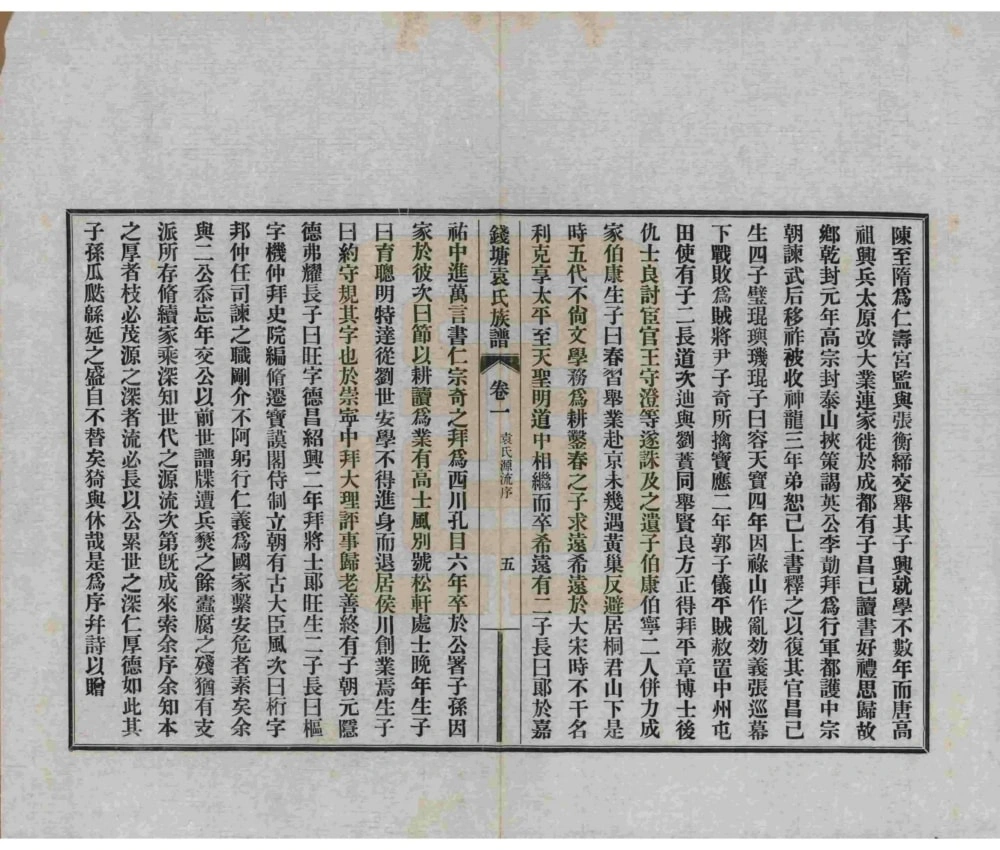 陳至隋爲仁壽宮監與張衡締交舉其子興就學不數年而唐高
祖興兵太原改大業連家徙於成都有子昌己讀書好禮思歸故
鄉乾封元年高宗封泰山挾策謁英公李勣拜爲行軍都護中宗
朝諫武后移祚被收神龍三年弟恕己上書釋之以復其官昌己
生四子璧琨璵璣琨子曰容天寶四年因祿山作亂効義張巡幕
下戰敗爲賊將尹子奇所擒寶應二年郭子儀平賊赦置中州屯
田使有子二長道次迪與劉蕡同舉賢良方正得拜平章博士後
仇士良討宦官王守澄等遂誅及之遺子伯康伯寧二人併力成
家伯康生子曰春習舉業赴京未幾遇黃巢反避居桐君山下是
時五代不尙文學務爲耕鑿春之子求遠希遠於大宋時不干名
利克享太平至天聖明道中相繼而卒希遠有二子長曰郞於嘉
錢塘袁氏族譜 卷一 袁氏源流序 五
祐中進萬言書仁宗奇之拜爲西川孔目六年卒於公署子孫因
家於彼次曰節以耕讀爲業有高士風別號松軒處士晚年生子
曰育聰明特達從劉世安學不得進身而退居侯川創業焉生子
曰約守規其字也於崇寧中拜大理評事歸老善終有子朝元隱
德弗耀長子曰旺字德昌紹興二年拜將士郞旺生二子長曰樞
字機仲拜史院編脩遷寶謨閣侍制立朝有古大臣風次曰桁字
邦仲任司諫之職剛介不阿躬行仁義爲國家繫安危者素矣余
與二公忝忘年交公以前世譜牒遭兵燹之餘蠹腐之殘猶有支
派所存脩續家乘深知世代之源流次第旣成來索余序余知本
之厚者枝必茂源之深者流必長以公累世之深仁厚德如此其
子孫瓜瓞緜延之盛自不替矣猗與休哉是爲序幷詩以贈